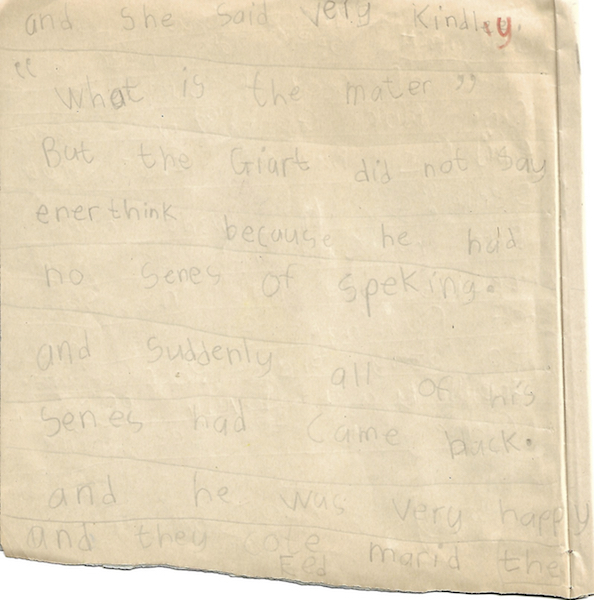 and she said very Kindly.
“ what is the mater ”
But the Giart did not say
ener think because he hdd
no senes of speking.
and suddenly all of his
senes had came back.
and he was very happy
and they cote
Eed marid the